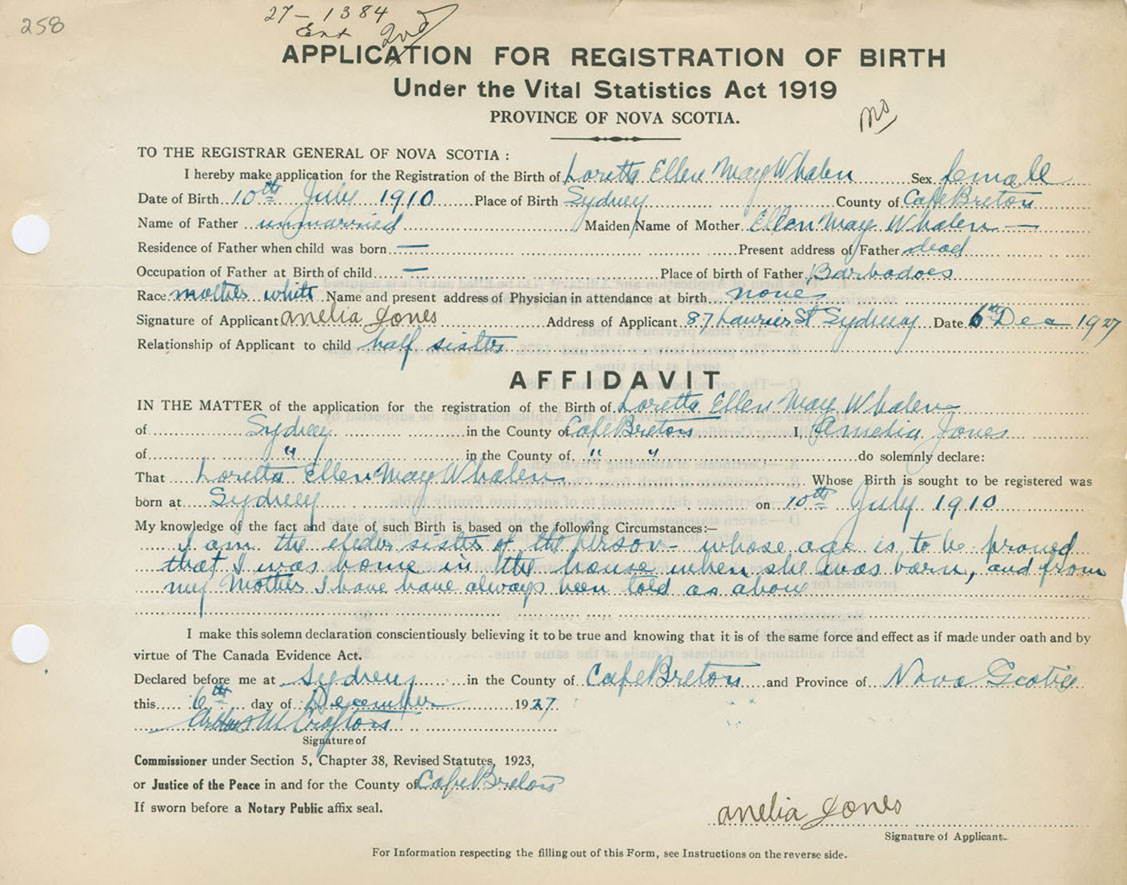 258
27-1384
Ent 2nd
APPLICATION FOR REGISTRATION OF BIRTH
Under the Vital Statistics Act 1919
PROVINCE OF NOVA SCOTIA.
no
TO THE REGISTRAR GENERAL OF NOVA SCOTIA:
I hereby make application for the Registration of the Birth of Loretta Ellen May Whalen Sex female
Date of Birth 10th July 1910 Place of Birth Sydney County of Cape Breton
Name of Father unmarried Maiden Name of Mother Ellen May Whalen —
Residence of Father when child was born — Present address of Father dead
Occupation of Father at Birth of child — Place of birth of Father Barbadoes
Race mother white Name and present address of Physician in attendance at birth none
Signature of Applicant anelia Jones Address of Applicant 87 Laurier St Sydney Date 6th Dec 1927
Relationship of Applicant to child half sister
AFFIDAVIT
IN THE MATTER of the application for the registration of the Birth of Loretta Ellen May Whalen
of Sydney in the County of Cape Breton I, Amelia Jones
of " in the County of " " do solemnly declare:
That Loretta Ellen May Whalen Whose Birth is sought to be registered was
born at Sydney on 10th July 1910
My knowledge of the fact and date of such Birth is based on the following Circumstances:—
I am the elder sister of the person whose age is to be proved
that I was home in the house when she was born, and from
my Mother I have have always been told as above
I make this solemn declaration conscientiously believing it to be true and knowing that it is of the same force and effect as if made under oath and by
virtue of The Canada Evidence Act.
Declared before me at Sydney in the County of Cape Breton and Province of Nova Scotia
this 6th day of December 1927
Crofton
Signature of
Commissioner under Section 5, Chapter 38, Revised Statutes, 1923,
or Justice of the Peace in and for the County of Cape Breton
If sworn before a Notary Public affix seal.
anelia Jones
Signature of Applicant.
For Information respecting the filling out of this Form, see Instructions on the reverse side.